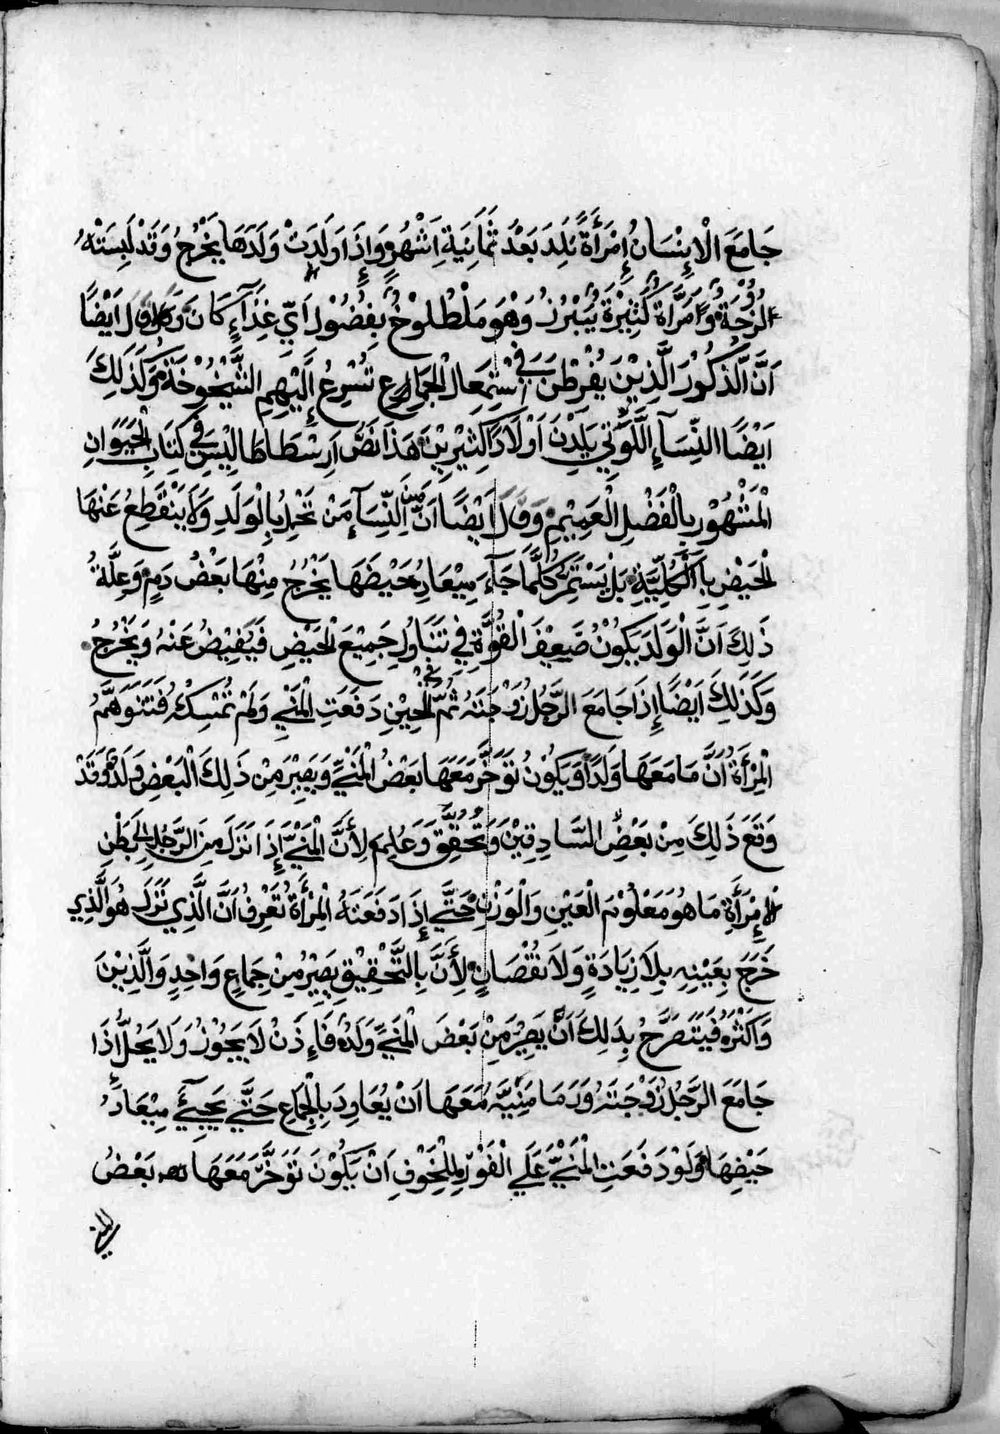 جَامَعَ الْاِنْسَانُ اِمْرَأَةً تَلِدَ بَعْدُ ثَمَانِيَةِ اَشْهُرٍ وَإِذَا وَلَدَتْ وَلَدَهَا يَخْرُجُ وَقَدْ لَبِسَتْهُ
الزُّوْجَةُ وَاَمَرَّاةً كَثِيْرَةً يَبْرُزُ وَهْوَ مَلْطُلُوخٌ بِفُضُوْلِ اَيِّ غِذَآءٍ كَانَ وَقَالَ اَيْضًا
اَنَّ الذُّكُوْرَ الَّذِيْنَ يُفْرِطُنَ فِي اسْتِعْمَالِ الْجِمَاعِ تُسْرِعُ إِلَيْهِمِ الشَّيْخُوْخَةُ وَكَذَلِكَ
اَيْضًا النِّسَآءِ اللَّوَتِي يَلِدْنَ اَوْلَادًا كَثِيْرِيْنَ هَذَا نَصُّ اَرِسْطَاطَالِيْسَ فِي كِتَابِ الْحَيَوَانِ
الْمَشْهُوْرِ بِالْفَضْلِ الْعَمِيْمِ وَقَالَ اَيْضًا اَنَّ مِنَ النِّسَآءِ مَنْ تَحْبَلُ بِالْوَلَدِ وَلَا يَنْقَطِعُ عَنْهَا
الْحَيْضِ بِالْكُلِّيَّةِ بَلْ يَسْتَمِرُّ كُلَّمَا جَآءَ مِيْعَادُ حَيْضَهَا يَخْرُجُ مِنْهَا بَعْضُ دَمٍ وَعِلَّةُ
ذَلِكَ اَنَّ الْوَلَدَ يَكُوْنُ ضَعِيْفَ الْقُوَّةِ فِي تَنَاوُلِ جَمِيْعَ الْحَيْضِ فَيَفِيْضُ عَنْهُ وَيَخْرُجُ
وَكَذَلِكَ اَيْضًا إِذَا جَامَعَ الرَّجُلُ زَوْجَتَهُ ثُمَّ الْحِيْنِ دَفَعَتِ الْمَنِيَ وَلَمْ تُمْسِكْهُ فَتَتَوَهَّمُ
الْمِرْأَةُ اَنَّ مَا مَعَهَا وَلَدًا وَيَكُوْنُ تَوَخَّرَ مَعَهَا بَعْضُ الْمَنِيِّ وَيَصِيْرَ مِنْ ذَلِكَ الْبَعْضِ وَلَدٌ وَقَدْ
وَقَعَ ذَلِكَ مِنْ بَعْضِ السَّادِقِيْنَ وَتُحُقِّقَ وَعُلِمَ لِأَنَّ الْمَنِيَّ إِذَا نَزَلَ مِنَ الرَّجُلِ اِلَى بَطْنِ
الْاِمْرَأَةِ مَا هُوَ مَعْلُوْمَ الْعَيْنِ وَالْوَزْنِ حَتَّي إِذَا دَفَعَتْهُ الْمِرْأَةُ تَعْرِفُ اَنَّ الَّذِي نَزَلَ هُوَ الَّذِي
خَرَجَ بِعَيْنِهِ بِلَا زِيَادَةٍ وَلَا نُقْصَانٍ لِأَنَّ بِالتَّحْقِيْقِ يَصِيْرُ مِنْ جِمَاعٍ وَاحِدٍ وَالَّذِيْنَ
وَاَكْثَرُ فَيَتَصَرَّحُ بِذَلِكَ اَنْ يَصِيْرَ مِنْ بَعْضَ الْمَنِيِّ وَلَدُ فَإِذَنْ لَا يَجُوْزُ وَلَا يَحُلُّ إِذَا
جَامَعَ الرَّجُلُ زَوْجَتَهُ وَرَمَا مَنِيَّهُ مَعَهَا اَنْ يُعَاوِدَ بِالْجِمَاعِ حَتَّي يَجِيَّ مِيْعَادُ
حَيْضِهَا وَلَوْ دَفَعَتِ الْمَنِيَّ عَلَي الْفَوْرِ لِلْخَوْفِ اَنْ يَكُوْنَ تَوَخَّرَ مَعَهَا بَعْضُ
المني